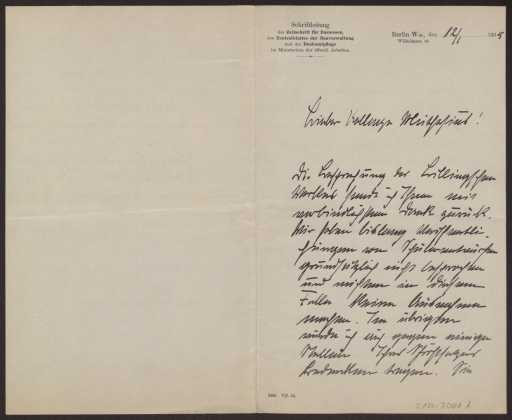 Schriftleitung
der Zeitschrift für Bauwesen,
des Zentralblattes der Bauverwaltung
und der Denkmalpflege
im Ministerium der öffentl. Arbeiten.
Berlin W 66, den 12/1 1915
Wilhelmstr. 89
Lieber Kollege Muthesius!
Die Besprechung der
Werkes sende ich Ihnen mit
verbindlichstem Dank zurück.
Wir haben bislang Veröffentli-
chungen von Schülerentwürfen
grundsätzlich nicht besprochen
und möchten in diesem
Falle keine Ausnahme
machen. Im übrigen
würde ich auch gegen einige
Stellen Ihres
Bedenken tragen. Die